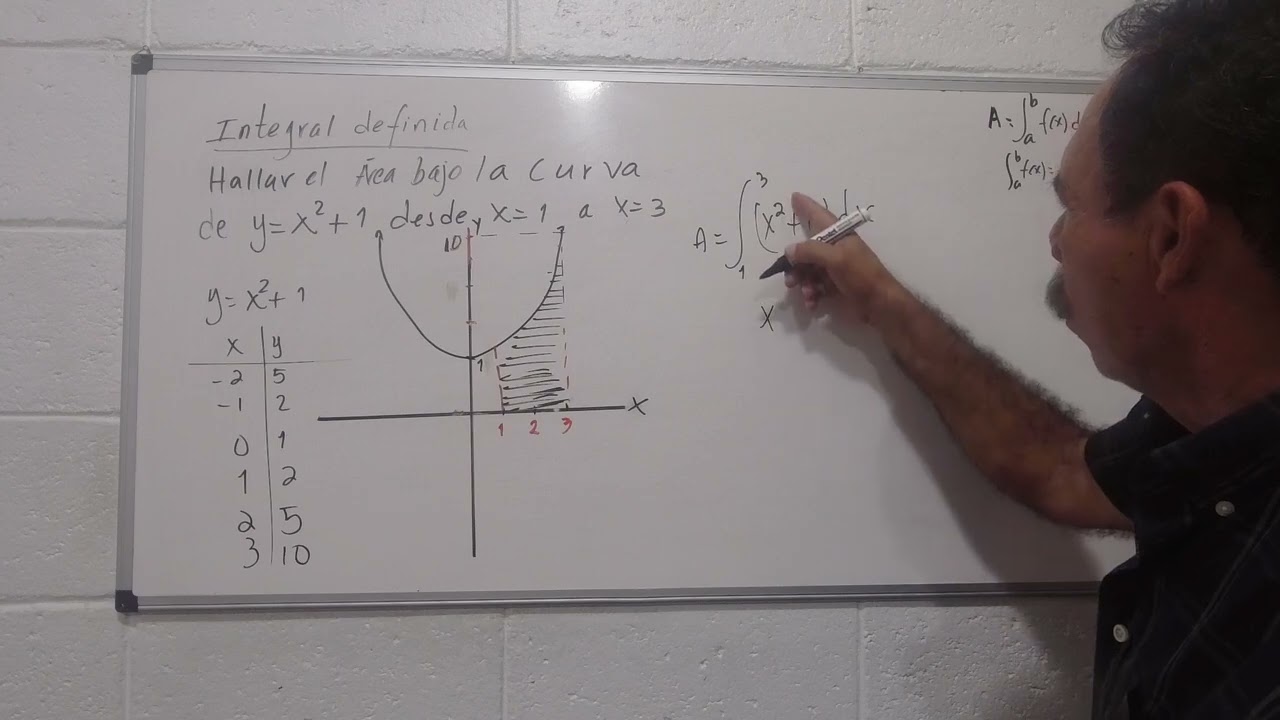 Integral definida
Hallar el Área bajo la Curva
de y = x² + 1 desde x = 1 a x = 3
y = x² + 1
x | y
-2 | 5
-1 | 2
0 | 1
1 | 2
2 | 5
3 | 10
y
10
1
x
1 2 3
A = ∫₁³ (x² +
x
A = ∫ₐᵇ f(x)
∫ₐᵇ f(x) =
Pentel